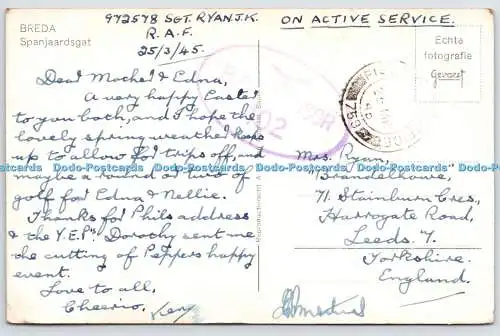 BREDA
Spanjaardsgat
972578 SGT. RYAN J.K.
R.A.F.
25/3/45.
ON ACTIVE SERVICE.
Echte
fotografie
Gevaert
Dear Mother & Edna,
A very happy Easter
to you both, and I hope the
lovely spring weather keeps
up to allow for trips off, and
maybe a round or two of
golf for Edna & Nellie.
Thanks for Phils address
& the "Y.E.P." Dorothy sent me
the cutting of Peppers happy
event.
Love to all,
Cheerio,
Mrs. Ryan,
71. Stainburn Cres.,
Harrogate Road,
Leeds. 7.
Yorkshire.
England.
Dodo-Postcards Dodo-Postcards Dodo-Postcards Dodo-Postcards Dodo-Postcards Dodo-Postcards